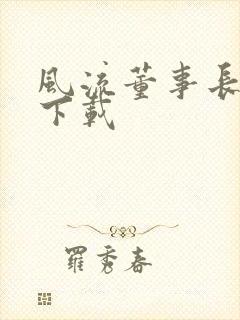 風流董事長
下載
羅秀春